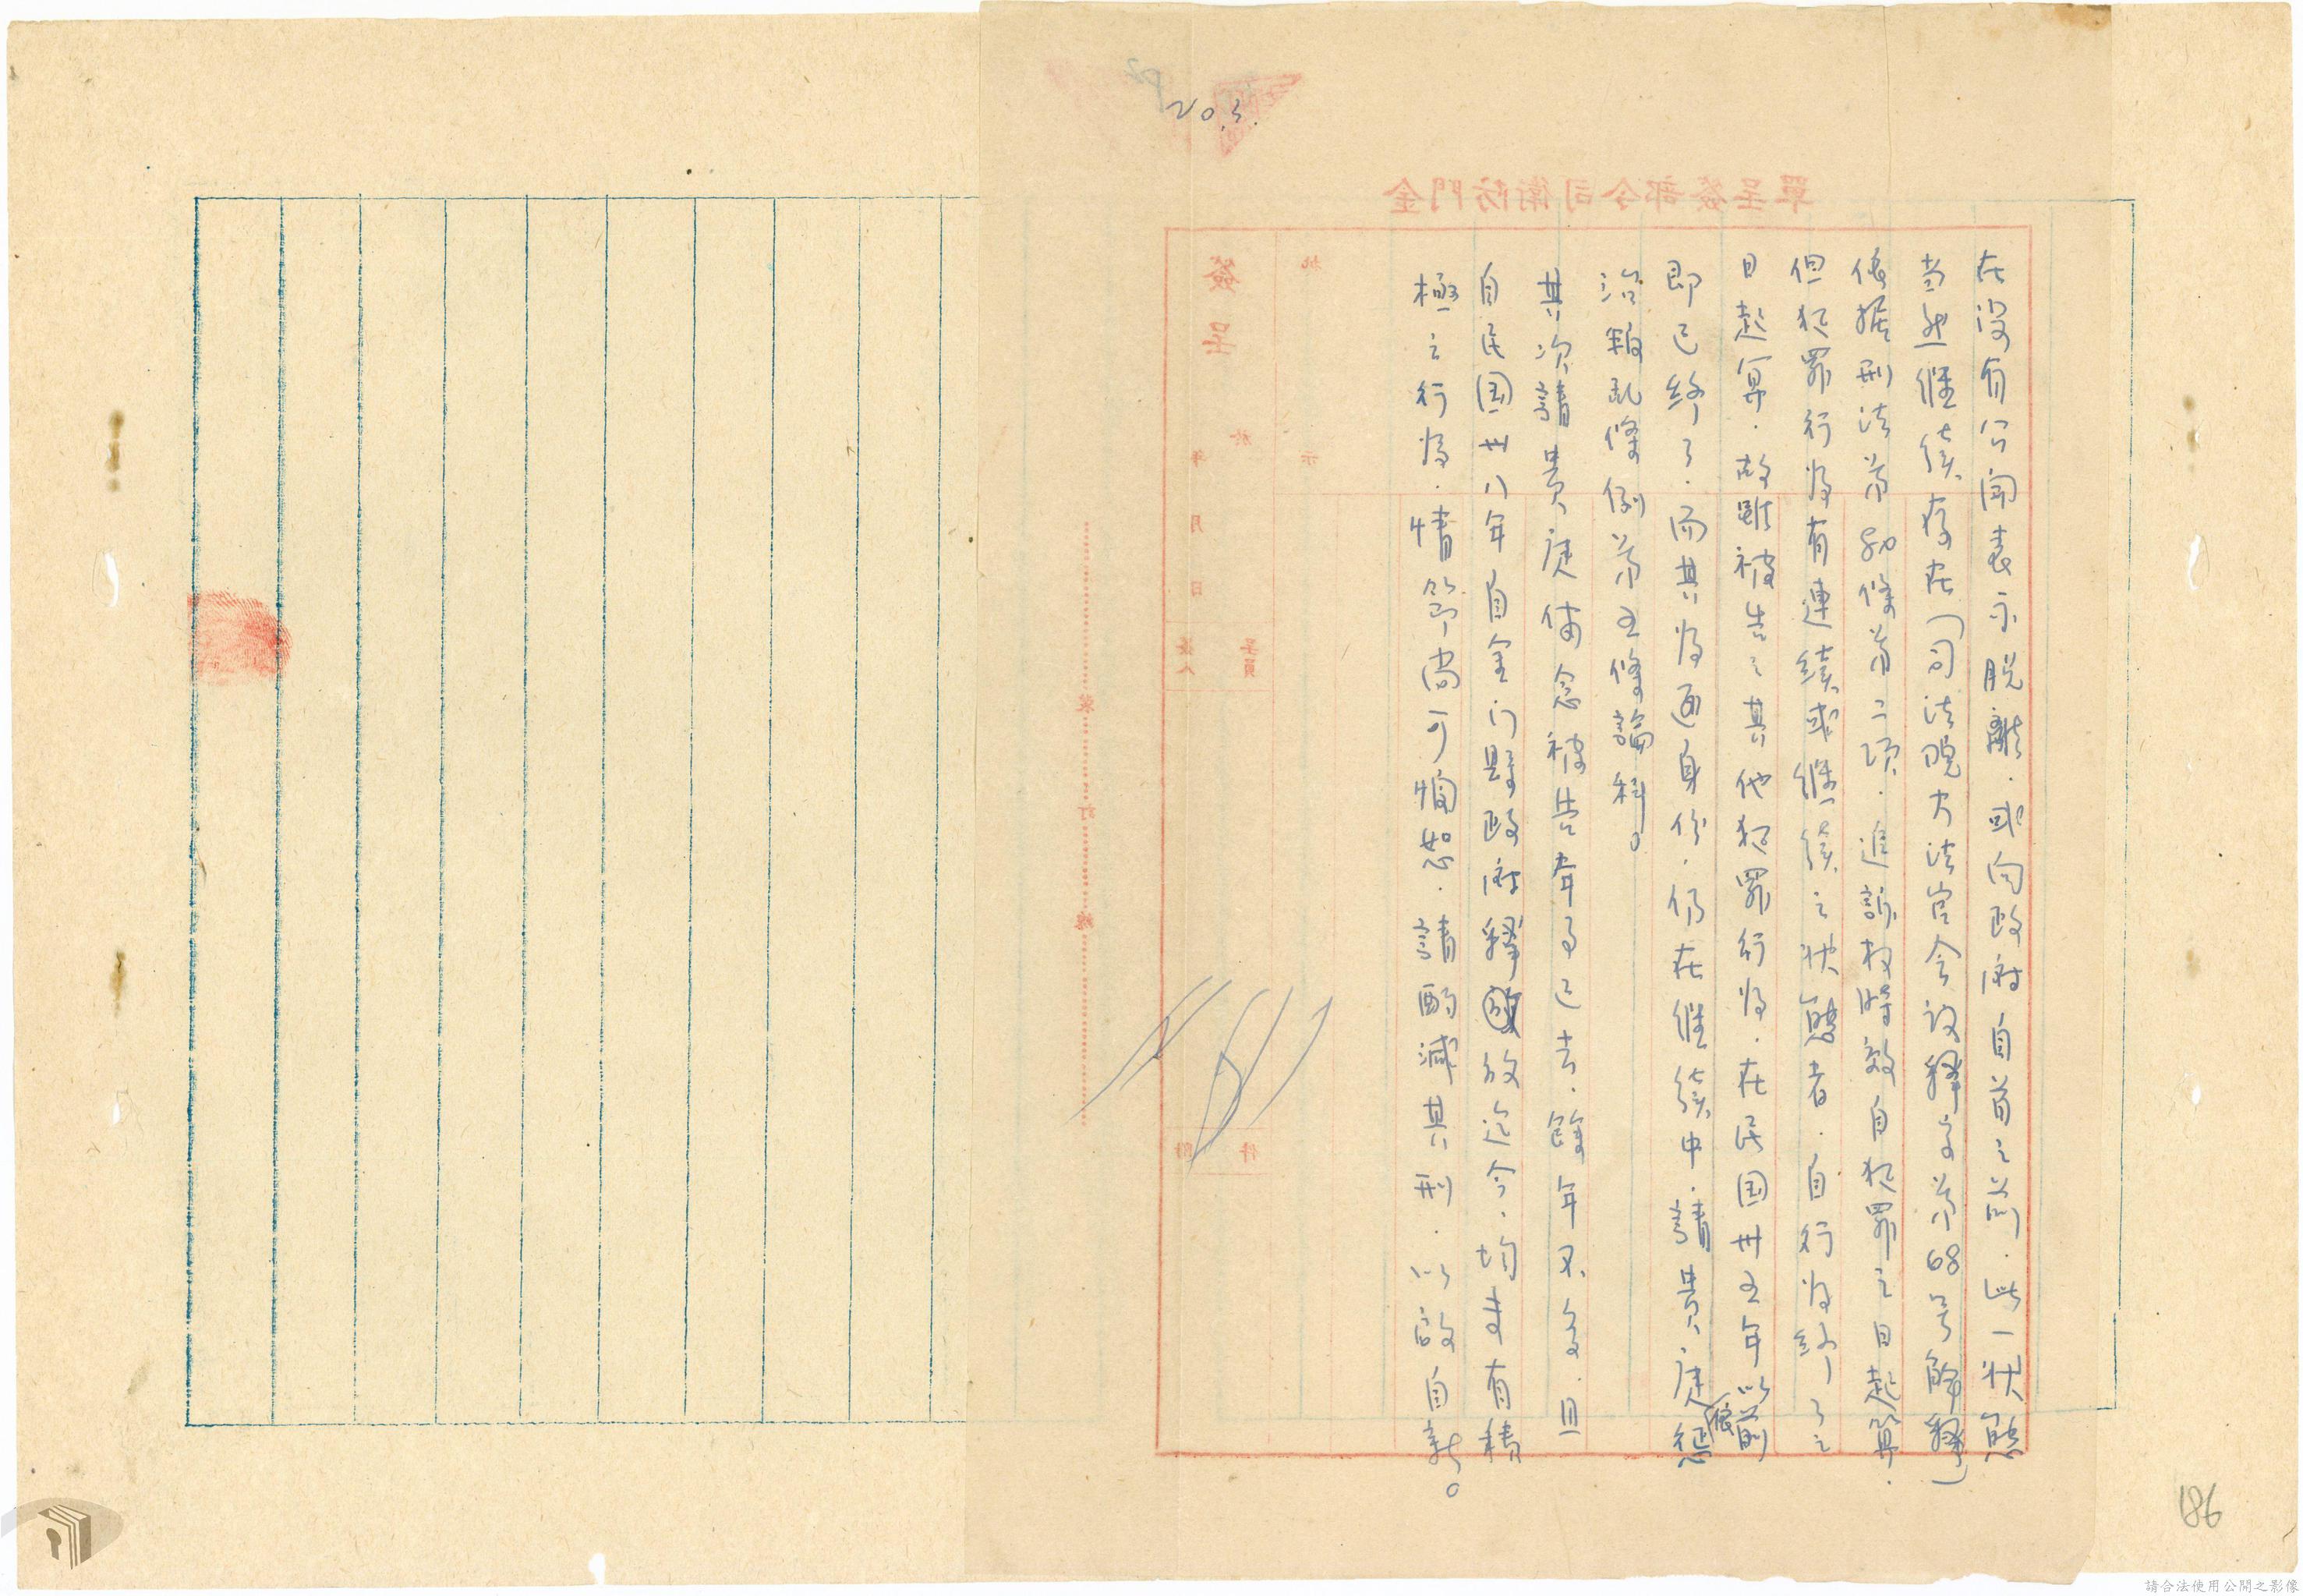 No.3.
在没有公開表示脫離．或向政府自首之前．此一狀態
当然继續存在（司法院大法官会议釋字第68号解釋）
依據刑法第80條第二項．追訴权時效自犯罪之日起算．
但犯罪行为有連續或继續之狀態者．自行为終了之
日起算．故雖被告之其他犯罪行为．在民国卅五年以前
即已終了．而其为匪身份．仍在继續中．請貴庭依懲
治叛乱條例第五條論科。
其次請貴庭体念被告年事已去．餘年不多．且
自民国卅八年自金门县政府釋放迄今．均未有積
極之行为．情节尚可憫恕．請酌減其刑．以啟自新。
金門防衛司令部簽呈單
簽呈
於
年
月
日
批
示
呈員
簽人
附
件
裝
訂
線
P2
186
請合法使用公開之影像